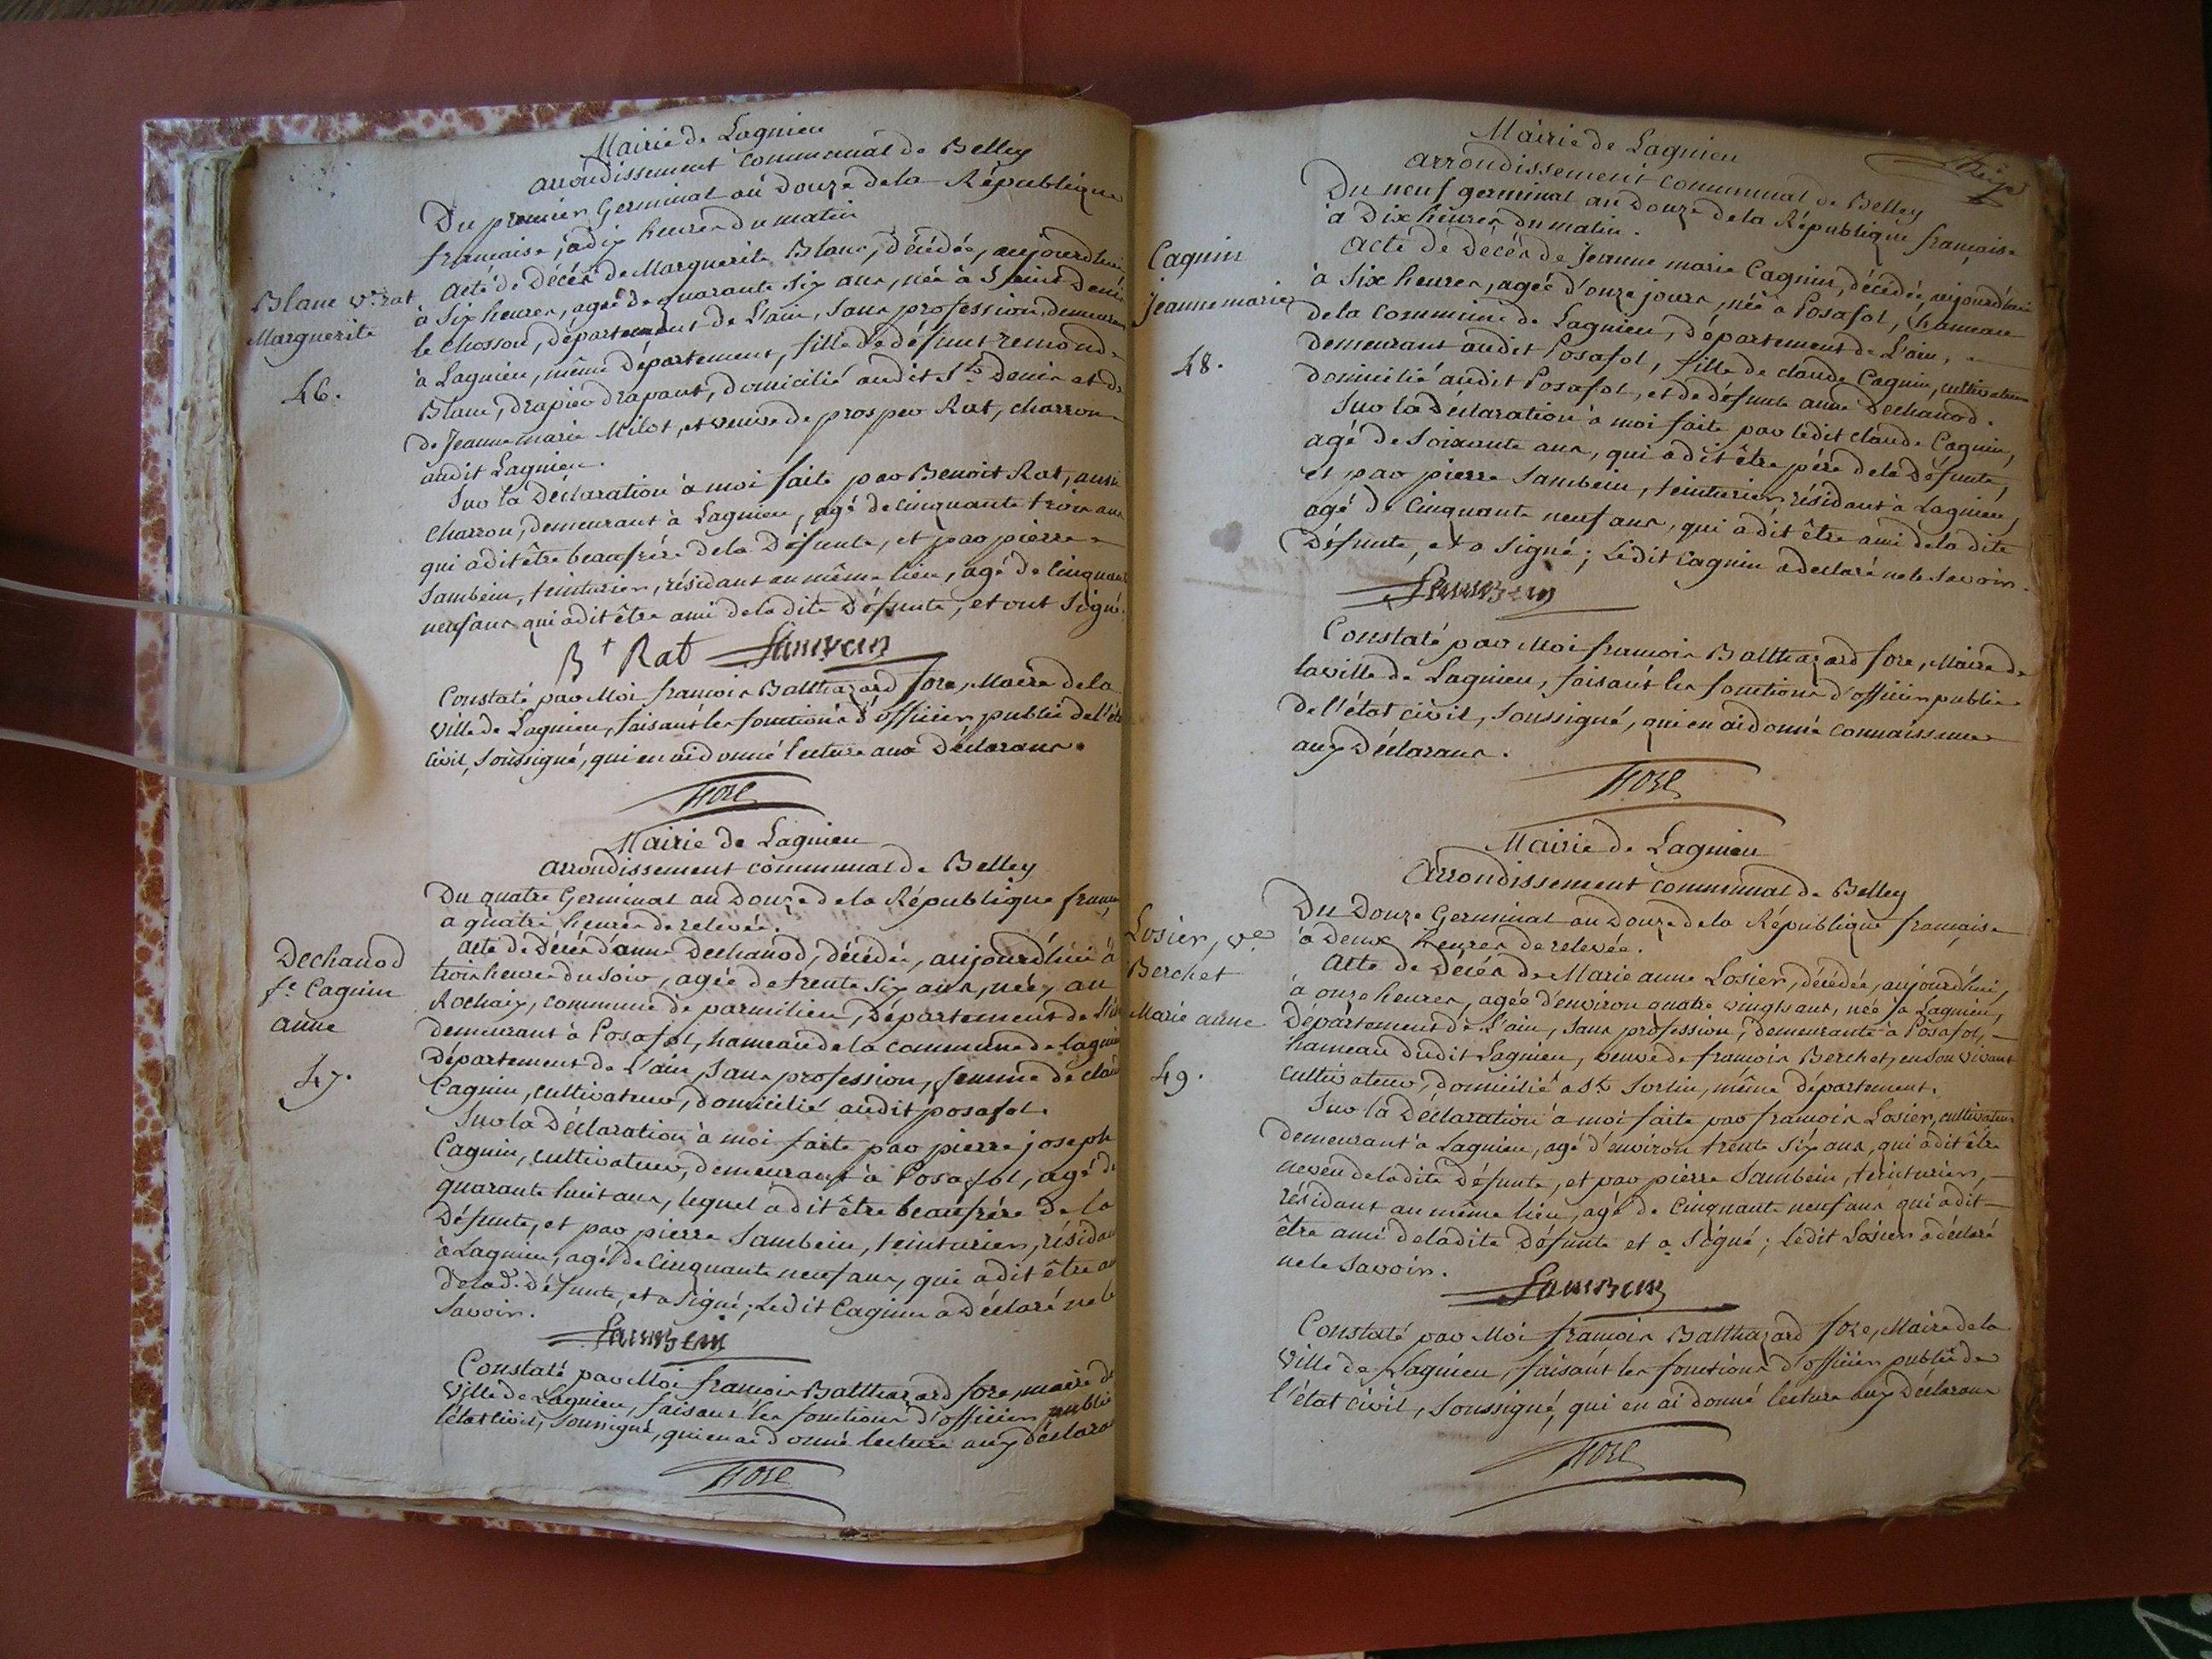 Mairie de Lagnieu
arrondissement communal de Belley
Du premier Germinal an Douze de la République
française, à dix heures du matin
Blanc ve. rat
Marguerite
46.
Acte de Décès de Marguerite Blanc, décédée, aujourdhui,
à Six heures, agée de quarante Six ans, née à Saint Denis
le Chosson, département de L'ain, sans profession, demeurant
à Lagnieu, même département, fille de défunt remond
Blanc, drapier drapant, domicilié audit St. Denis et de
de Jeanne marie Milot, et veuve de prosper Rat, charron
audit Lagnieu.
Sur la Déclaration à moi faite par Benoit Rat, aussi
Charron, demeurant à Lagnieu, agé de Cinquante trois ans
qui a dit être beaufrére de la Défunte, et par pierre
Sambein, teinturier, résidant au même lieu, agé de Cinquante
neuf ans qui a dit être ami de la dite Défunte, et ont Signé.
Bt Rat Sambein
Constaté par Moi françois Balthazard fore, Maire de la
ville de Lagnieu, faisant les fonctions d'officier public de l'état
Civil, Soussigné, qui en ai donné lecture aux Déclarans.
Fore
Mairie de Lagnieu
arrondissement communal de Belley
Du quatre Germinal an Douze de la République franç
a quatre heures de relevée.
Dechanod
fe. Cagnin
anne
47.
Acte de Décès d'anne Dechanod, décédée, aujourd'hui à
trois heures du soir, agée de trente Six ans, née au
Rochaix, commune de parmilieu, Département de l'is
demeurant à Posafol, hameau de la commune de lagnieu
Département de L'ain, Sans profession, femme de clau
Cagnin, cultivateur, domicilié audit posafol.
Sur la Déclaration à moi faite par pierre joseph
Cagnin, cultivateur, demeurant à Posafol, agé de
quarante huit ans, lequel a dit être beaufrére de la
Défunte, et par pierre Sambein, teinturier, résidan
à Lagnieu, agé de Cinquante neuf ans, qui a dit être am
de lad. Défunte, et a Signé; Ledit Cagnin a Déclaré ne le
Savoir.
Sambein
Constaté par Moi françois Balthazard fore, maire de
ville de Lagnieu, faisant les fonctions d'officier public
l'état Civil, Soussigné, qui en ai donné lecture aux déclara
Fore
Mairie de Lagnieu
arrondissement communal de Belley
Du neuf germinal an Douze de la République française
à Dix heures du matin.
Cagnin
Jeanne marie
48.
Acte de Decès de Jeanne marie Cagnin, décédée, aujourd'hui
à Six heures, agée d'onze jours, née à Posafol, hameau
de la Commune de Lagnieu, département de L'ain,
demeurant audit Posafol, fille de claude Cagnin, cultivateur
domicilié audit Posafol, et de défunte anne Dechanod.
Sur la Déclaration à moi faite par ledit claude Cagnin,
agé de Soixante ans, qui a dit être pére de la Défunte,
et par pierre Sambein, teinturier, résidant à Lagnieu,
agé de Cinquante neuf ans, qui a dit être ami de la dite
Défunte, et a Signé; Ledit Cagnin a declaré ne le Savoir.
Sambein
Constaté par Moi françois Balthazard fore, Maire de
la ville de Lagnieu, faisant les fonctions d'officier public
de l'état civil, Soussigné, qui en ai donné connaissance
aux Déclarans.
Fore
Mairie de Lagnieu
Arrondissement communal de Belley
Du Douze Germinal an Douze de la République française
à deux heures de relevée.
Losier, ve
Berchet
Marie anne
49.
Acte de Décès de Marie anne Losier, décédée, aujourd'hui,
à onze heures, agée d'environ quatre vingts ans, née à Lagnieu,
Département de L'ain, Sans profession, demeurante à Posafol,
hameau dudit Lagnieu, veuve de françois Berchet, en son vivant
Cultivateur, domicilié a St. Sorlin, même département.
Sur la Déclaration à moi faite par françois Losier, cultivateur
demeurant à Lagnieu, agé d'environ trente Six ans, qui a dit être
neveu de la dite Défunte, et par pierre Sambein, teinturier,
résidant au même lieu, agé de Cinquante neuf ans qui a dit
être ami de la dite Défunte et a Signé; Ledit Losier a déclaré
ne le Savoir.
Sambein
Constaté par Moi françois Balthazard fore, Maire de la
Ville de Lagnieu, faisant les fonctions d'officier public de
l'état Civil, Soussigné, qui en ai donné lecture aux Déclarans
Fore